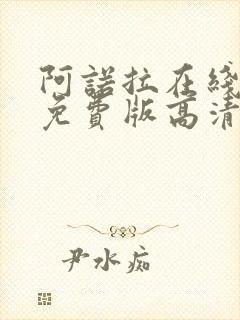 阿諾拉在綫
免費版高清
尹水痴